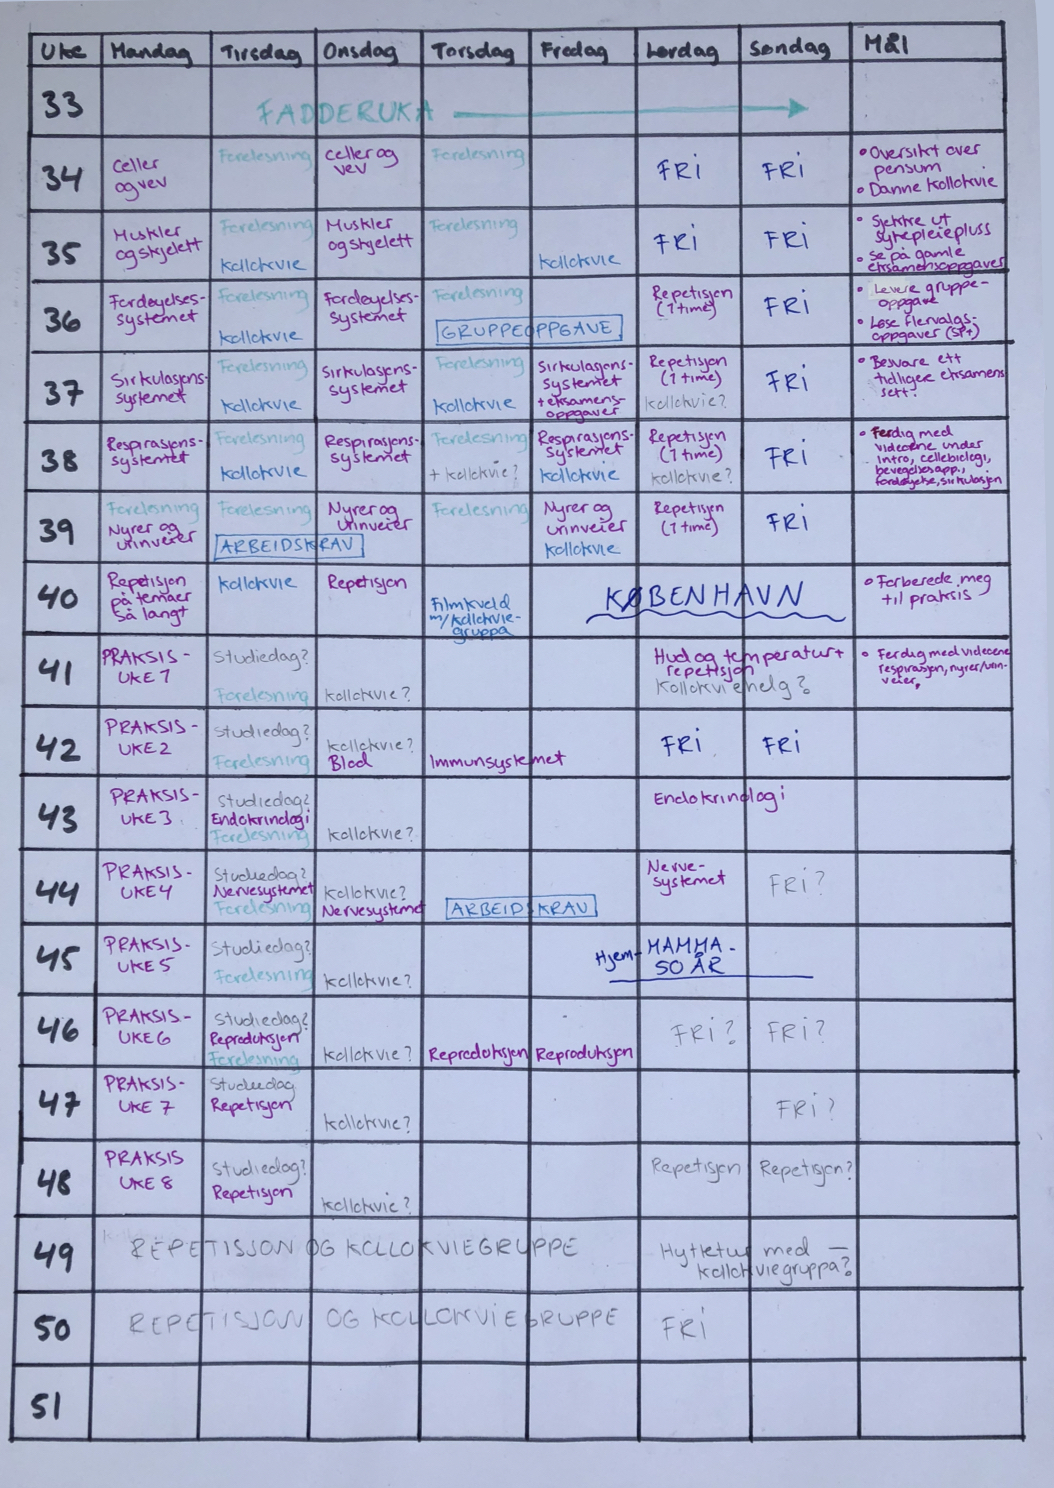 Uke Mandag Tirsdag Onsdag Torsdag Fredag Lørdag Søndag Mål
33
FADDERUKA
34
Celler
og vev
Forelesning
Celler og
vev
Forelesning
FRI
FRI
• Oversikt over
pensum
• Danne kollokvie
35
Muskler
og skjelett
Forelesning
kollokvie
Muskler
og skjelett
Forelesning
kollokvie
FRI
FRI
• Sjekke ut
sykepleiepluss
• se på gamle
eksamensoppgaver
36
Fordøyelses-
systemet
Forelesning
kollokvie
Fordøyelses-
systemet
Forelesning
GRUPPEOPPGAVE
Repetisjon
(1 time)
FRI
• Levere gruppe-
oppgave
• Løse flervalgs-
oppgaver (SP+)
37
Sirkulasjons-
systemet
Forelesning
kollokvie
Sirkulasjons-
systemet
Forelesning
kollokvie
Sirkulasjons-
systemet
+ eksamens-
oppgaver
Repetisjon
(1 time)
kollokvie?
FRI
• Besvare ett
tidligere eksamens
sett?
38
Respirasjons-
systemet
Forelesning
kollokvie
Respirasjons-
systemet
Forelesning
+ kollokvie?
Respirasjons-
systemet
kollokvie
Repetisjon
(1 time)
kollokvie?
FRI
• Ferdig med
videoene under
intro, cellebiologi,
bevegelsesapp.,
fordøyelse, sirkulasjon
39
Forelesning
Nyrer og
urinveier
Forelesning
ARBEIDSKRAV
Nyrer og
urinveier
Forelesning
Nyrer og
urinveier
kollokvie
Repetisjon
(1 time)
FRI
40
Repetisjon
på temaer
så langt
kollokvie
Repetisjon
Filmkveld
m/kollokvie-
gruppa
KØBENHAVN
• Forberede meg
til praksis
41
PRAKSIS -
UKE 1
Studiedag?
Forelesning
kollokvie?
Hud og temperatur +
repetisjon
Kollokviehelg?
• Ferdig med videoene
respirasjon, nyrer/urin-
veier,
42
PRAKSIS -
UKE 2
Studiedag?
Forelesning
kollokvie?
Blod
Immunsystemet
FRI
FRI
43
PRAKSIS -
UKE 3
Studiedag?
Endokrinologi
Forelesning
kollokvie?
Endokrinologi
44
PRAKSIS-
UKE 4
Studiedag?
Nervesystemet
Forelesning
kollokvie?
Nervesystemet
ARBEIDSKRAV
Nerve-
systemet
FRI?
45
PRAKSIS-
UKE 5
Studiedag?
Forelesning
kollokvie?
Hjem - MAMMA -
50 ÅR
46
PRAKSIS -
UKE 6
Studiedag?
Reproduksjon
Forelesning
kollokvie?
Reproduksjon
Reproduksjon
FRI?
FRI?
47
PRAKSIS-
UKE 7
Studiedag
Repetisjon
kollokvie?
FRI?
48
PRAKSIS
UKE 8
Studiedag?
Repetisjon
kollokvie?
Repetisjon
Repetisjon?
49
REPETISJON OG KOLLOKVIEGRUPPE
Hyttetur med
kollokviegruppa?
50
REPETISJON OG KOLLOKVIEGRUPPE
FRI
51